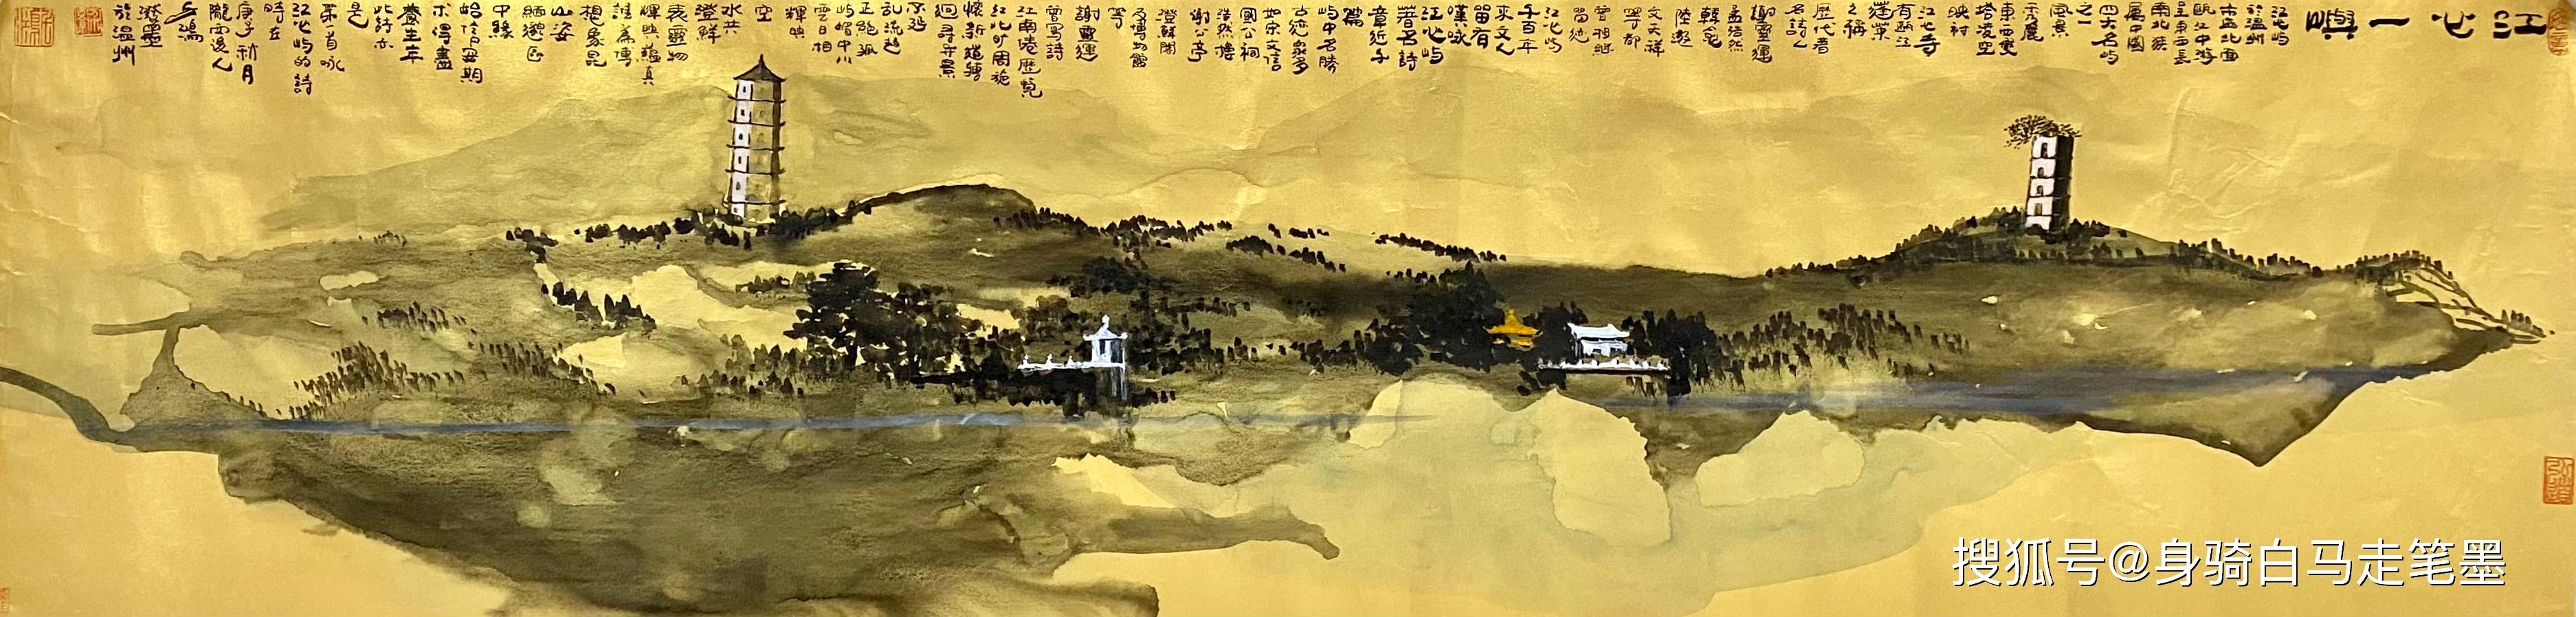 江心一嶼
江心屿
於溫州
市區北面
甌江中游
呈東西長
南北狹
屬中國
四大名屿
之一
風景
秀麗
東西雙
塔凌空
映衬
江心寺
有甌江
蓬萊
之稱
歷代著
名詩人
謝靈運
孟浩然
韓愈
陸游
文天祥
等都
曾相继
留迹
江心屿
千百年
來文人
留有
嘆咏
江心屿
著名詩
章近千
篇
屿中名勝
古迹众多
如宋文信
國公祠
浩然樓
谢公亭
澄鮮閣
及博物館
等
謝靈運
曾寫詩
江南倦歷覽
江北旷周旋
懷新道轉
迥尋异景
不延
乱流趋
正絕孤
屿媚中川
雲日相
輝映
空
水共
澄鮮
表靈物
輝與蘊真
誰為傳
想象昆
山姿
緬邈區
中緣
始信安期
术得盡
養生年
此詩亦
是
第首咏
江心屿的詩
時在
庚子秋月
隴西逸人
岳鴻
潑墨
於溫州
搜狐号@身骑白马走笔墨